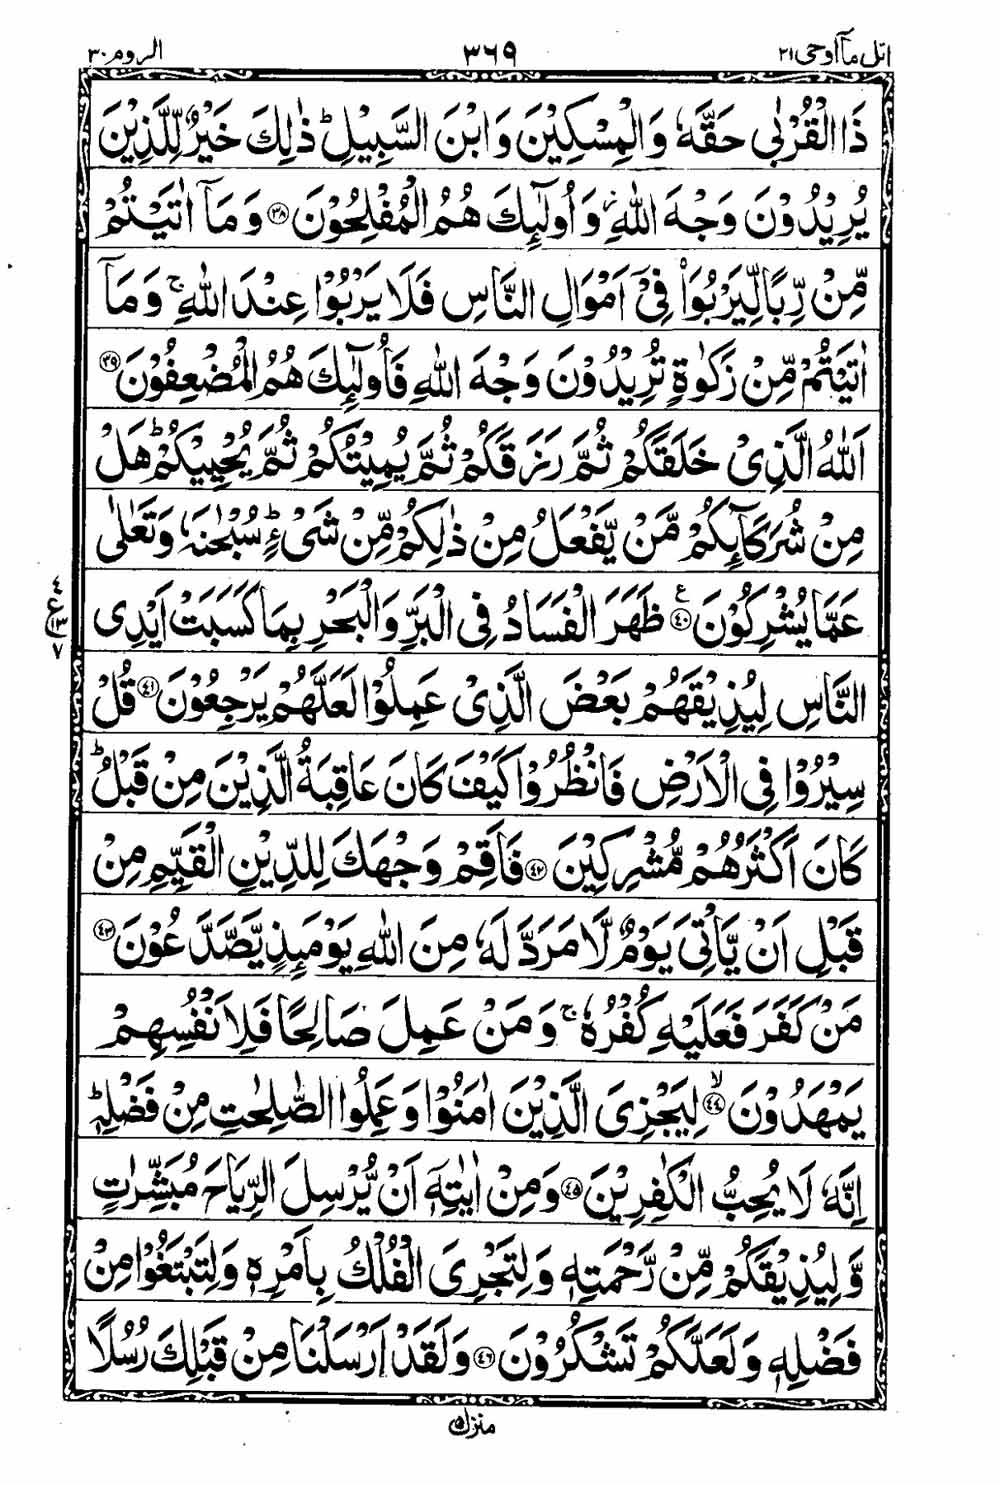 اتل مآاوحی ۲۱ ۳۶۹ الروم ۳۰
ذَا الْقُرْبٰی حَقَّهٗ وَالْمِسْكِیْنَ وَابْنَ السَّبِیْلِ ؕ ذٰلِكَ خَیْرٌ لِّلَّذِیْنَ
یُرِیْدُوْنَ وَجْهَ اللّٰهِ ؗ وَاُولٰٓئِكَ هُمُ الْمُفْلِحُوْنَ ﴿۳۸﴾ وَمَاۤ اٰتَیْتُمْ
مِّنْ رِّبًا لِّیَرْبُوَا۠ فِیْۤ اَمْوَالِ النَّاسِ فَلَا یَرْبُوْا عِنْدَ اللّٰهِ ۚ وَمَاۤ
اٰتَیْتُمْ مِّنْ زَكٰوةٍ تُرِیْدُوْنَ وَجْهَ اللّٰهِ فَاُولٰٓئِكَ هُمُ الْمُضْعِفُوْنَ ﴿۳۹﴾
اَللّٰهُ الَّذِیْ خَلَقَكُمْ ثُمَّ رَزَقَكُمْ ثُمَّ یُمِیْتُكُمْ ثُمَّ یُحْیِیْكُمْ ؕ هَلْ
مِنْ شُرَكَآئِكُمْ مَّنْ یَّفْعَلُ مِنْ ذٰلِكُمْ مِّنْ شَیْءٍ ؕ سُبْحٰنَهٗ وَتَعٰلٰی
عَمَّا یُشْرِكُوْنَ ﴿۴۰﴾ ع ظَهَرَ الْفَسَادُ فِی الْبَرِّ وَالْبَحْرِ بِمَا كَسَبَتْ اَیْدِی
۴ ع ۱۳ ۷
النَّاسِ لِیُذِیْقَهُمْ بَعْضَ الَّذِیْ عَمِلُوْا لَعَلَّهُمْ یَرْجِعُوْنَ ﴿۴۱﴾ قُلْ
سِیْرُوْا فِی الْاَرْضِ فَانْظُرُوْا كَیْفَ كَانَ عَاقِبَةُ الَّذِیْنَ مِنْ قَبْلُ ؕ
كَانَ اَكْثَرُهُمْ مُّشْرِكِیْنَ ﴿۴۲﴾ فَاَقِمْ وَجْهَكَ لِلدِّیْنِ الْقَیِّمِ مِنْ
قَبْلِ اَنْ یَّاْتِیَ یَوْمٌ لَّا مَرَدَّ لَهٗ مِنَ اللّٰهِ یَوْمَئِذٍ یَّصَّدَّعُوْنَ ﴿۴۳﴾
مَنْ كَفَرَ فَعَلَیْهِ كُفْرُهٗ ۚ وَمَنْ عَمِلَ صَالِحًا فَلِاَنْفُسِهِمْ
یَمْهَدُوْنَ ﴿۴۴﴾ ۙ لِیَجْزِیَ الَّذِیْنَ اٰمَنُوْا وَعَمِلُوا الصّٰلِحٰتِ مِنْ فَضْلِهٖ ؕ
اِنَّهٗ لَا یُحِبُّ الْكٰفِرِیْنَ ﴿۴۵﴾ وَمِنْ اٰیٰتِهٖۤ اَنْ یُّرْسِلَ الرِّیَاحَ مُبَشِّرٰتٍ
وَّلِیُذِیْقَكُمْ مِّنْ رَّحْمَتِهٖ وَلِتَجْرِیَ الْفُلْكُ بِاَمْرِهٖ وَلِتَبْتَغُوْا مِنْ
فَضْلِهٖ وَلَعَلَّكُمْ تَشْكُرُوْنَ ﴿۴۶﴾ وَلَقَدْ اَرْسَلْنَا مِنْ قَبْلِكَ رُسُلًا
منزل ۵